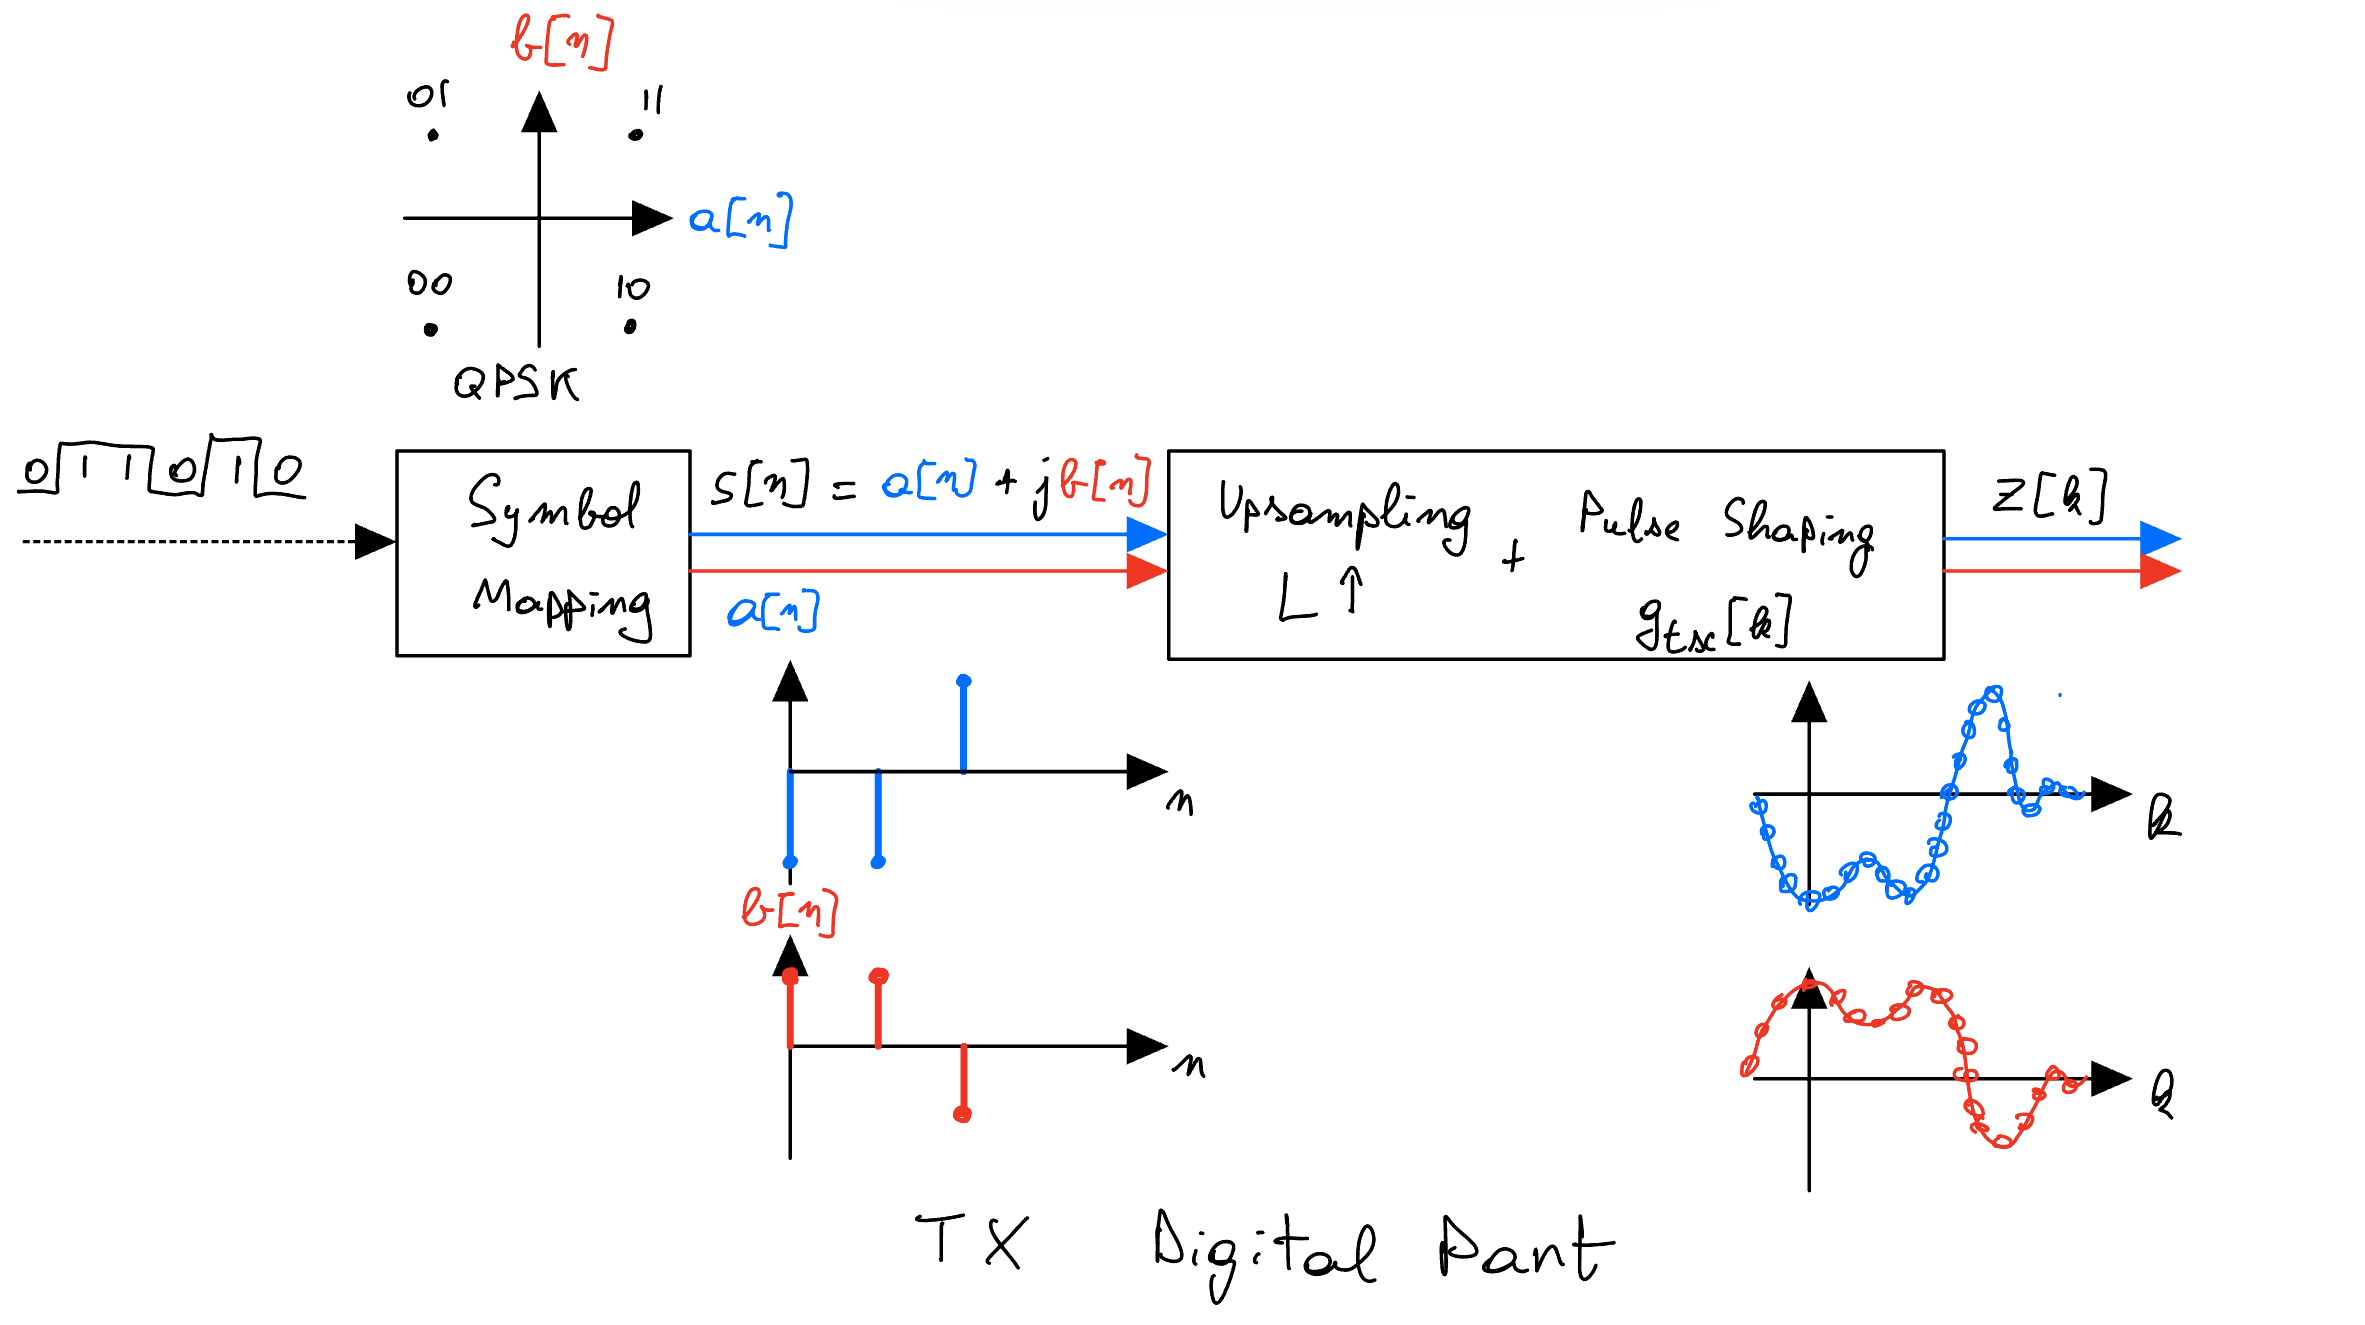 b[n]
01 11
a[n]
00 10
QPSK
0 1 1 0 1 0
Symbol
Mapping
s[n] = a[n] + jb[n]
Upsampling + Pulse Shaping
L ↑ g_tx[k]
z[k]
a[n]
n
k
b[n]
n
k
TX Digital Part